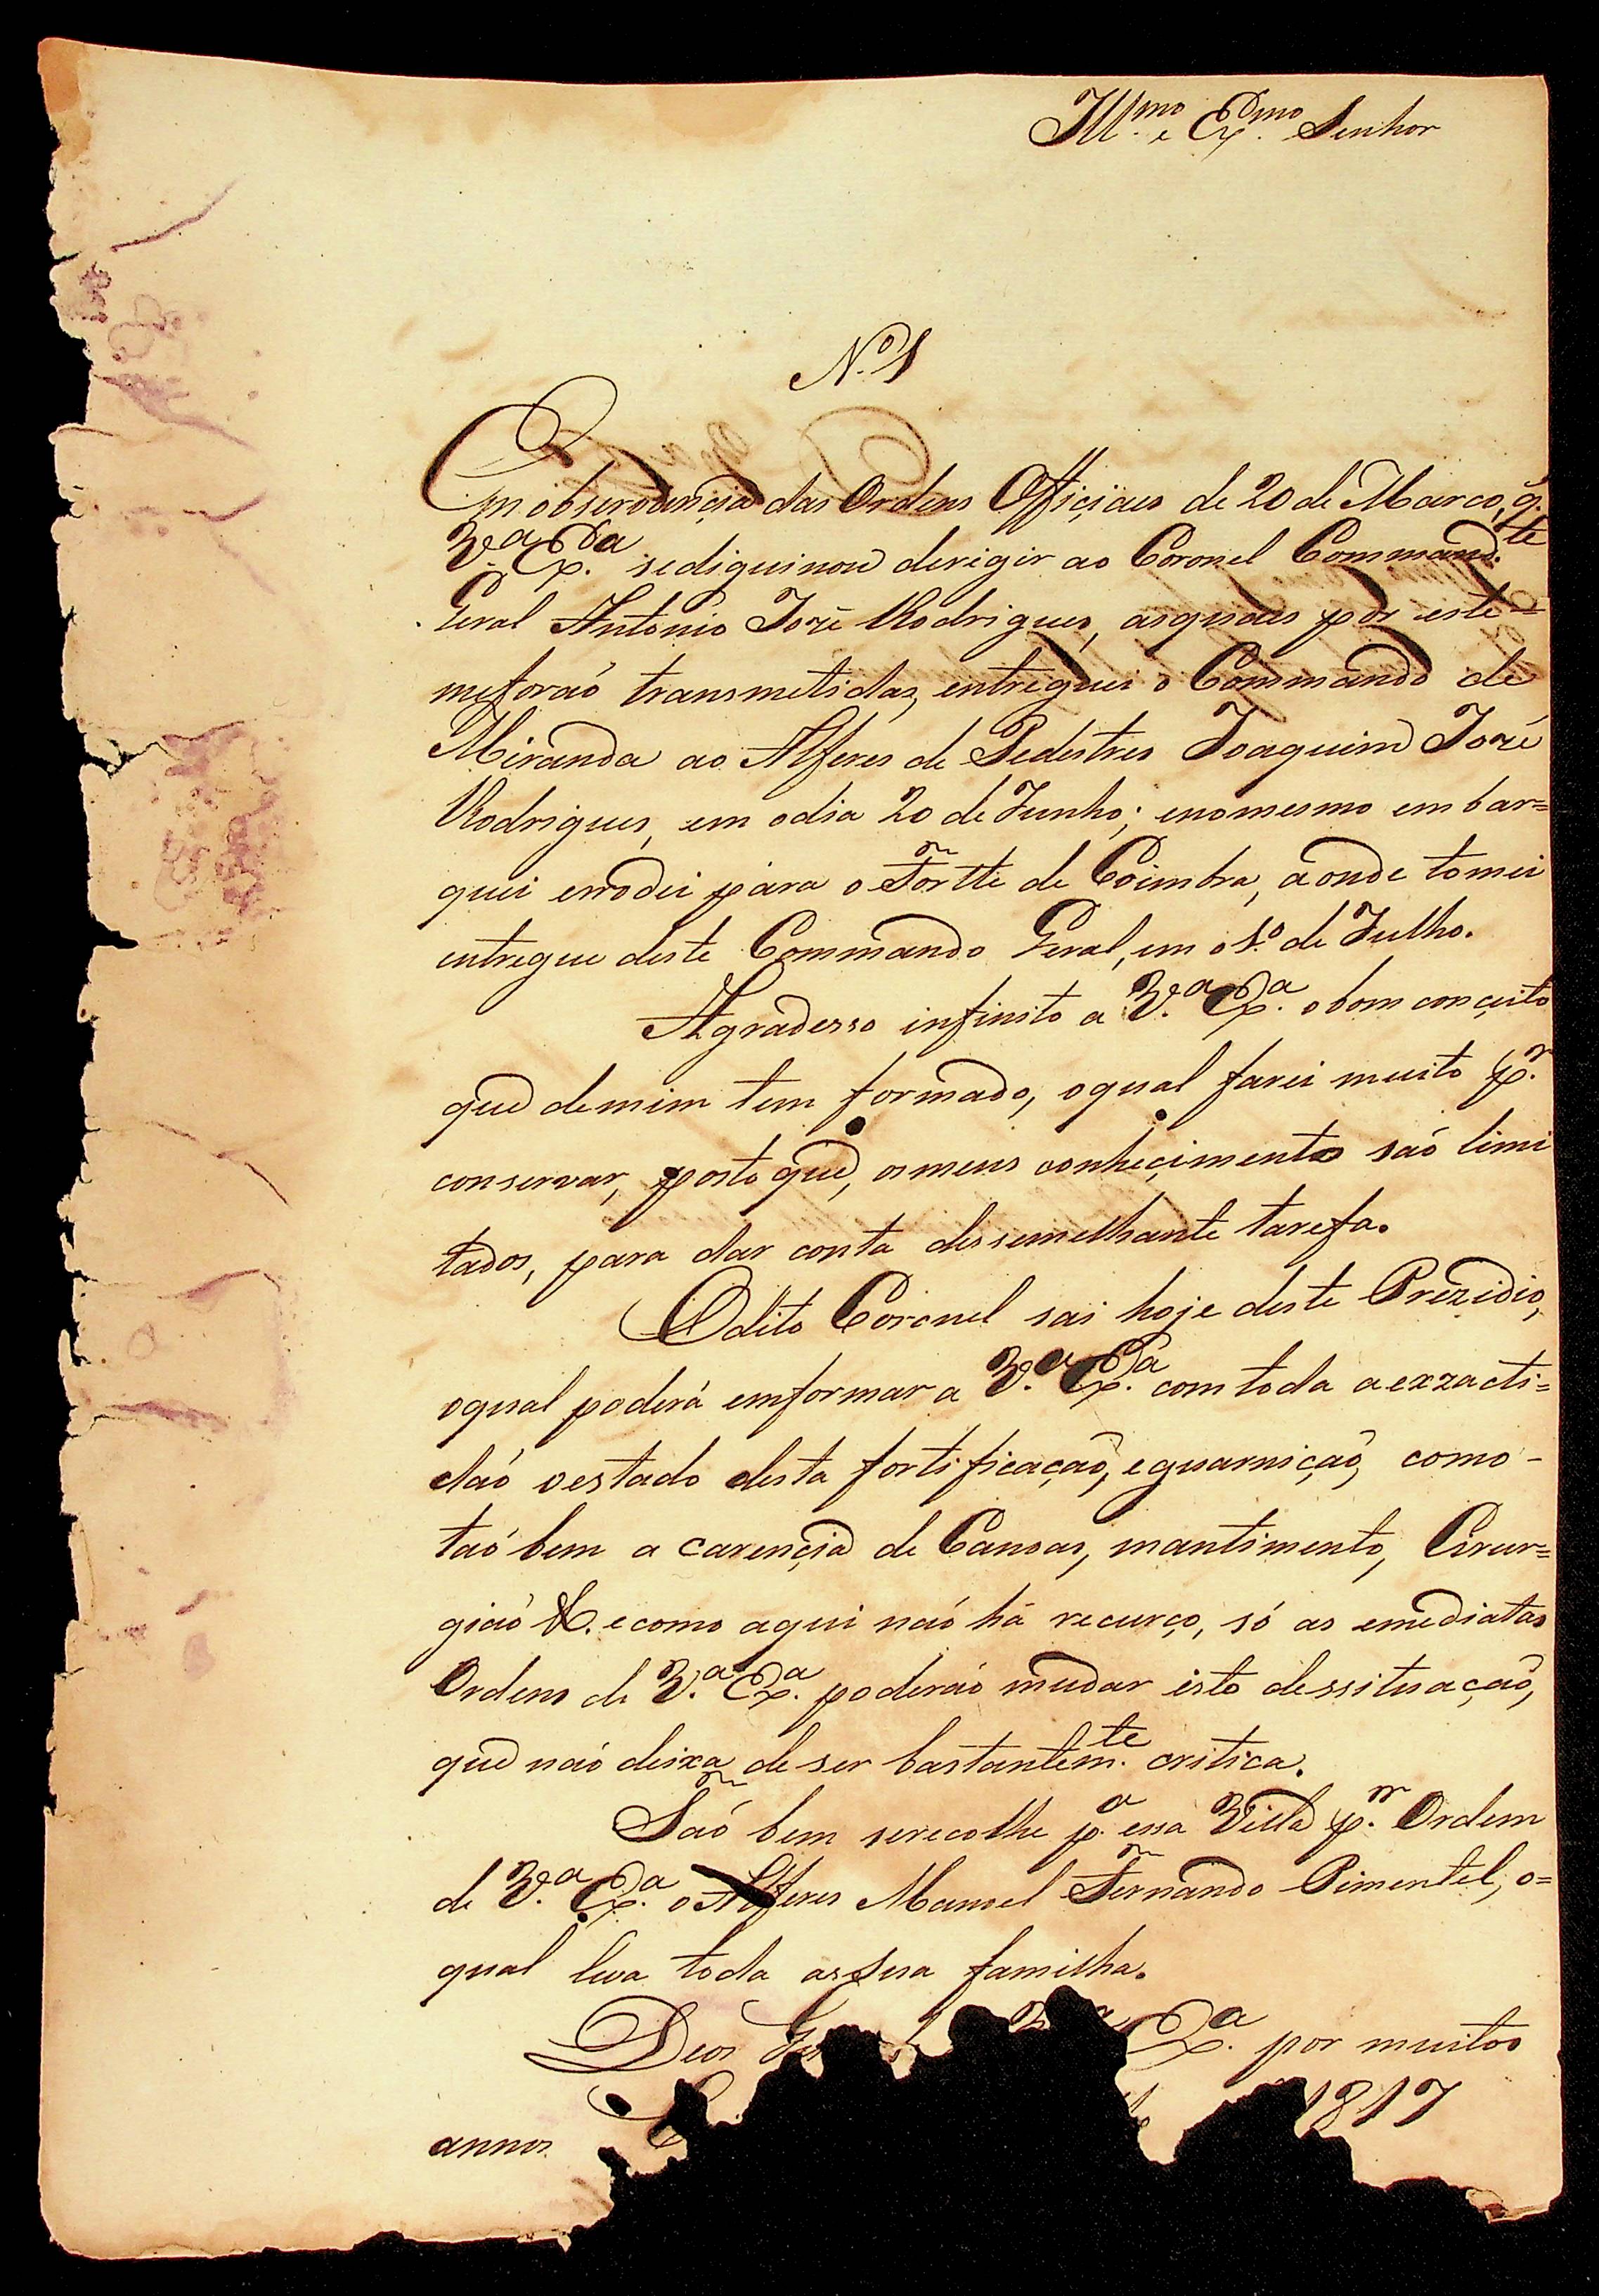 Ill.mo e Ex.mo Senhor
N.º 1
Em observançia das Ordens Offiçiaes de 20 de Marco, q.
V.a Ex.a sediguinou derigir ao Coronel Command.te
Geral Antonio Jozé Rodrigues, asquaes por este=
meforaó transmetidas, entreguei o Commando de
Miranda ao Alferes de Pedestres Joaquim Jozé
Rodrigues, em odia 20 de Junho; enomesmo embar=
quei errodei para o Fortte de Coimbra, aonde tomei
entregue deste Commando Geral, em o 1.º de Julho.
Agradesso infinito a V.a Ex.a obom conçeito
que demim tem formado, oqual farei muito p.r
conservar, posto que, osmeus conheçimentos saó limi
tados, para dar conta dessemelhante tarefa.
Odito Coronel sai hoje deste Prezidio,
oqual poderá emformar a V.a Ex.a comtoda aexzacti=
daó oestado desta fortificaçaõ, eguarniçaõ, como-
taó bem a carençia de Canoas, mantimento, Cirur=
giaó &. ecomo aqui naó há recurço, só as emediatas
Ordens de V.a Ex.a poderaó mudar isto dessituaçaõ,
que naó deixa de ser bastantem.te critica.
Taó bem serecolhe p.a essa Villa p.r Ordem
de V.a Ex.a o Alferes Manoel Fernando Pimentel, o=
qual leva toda assua familha.
Deos V.a Ex.a por muitos
annos. 1817